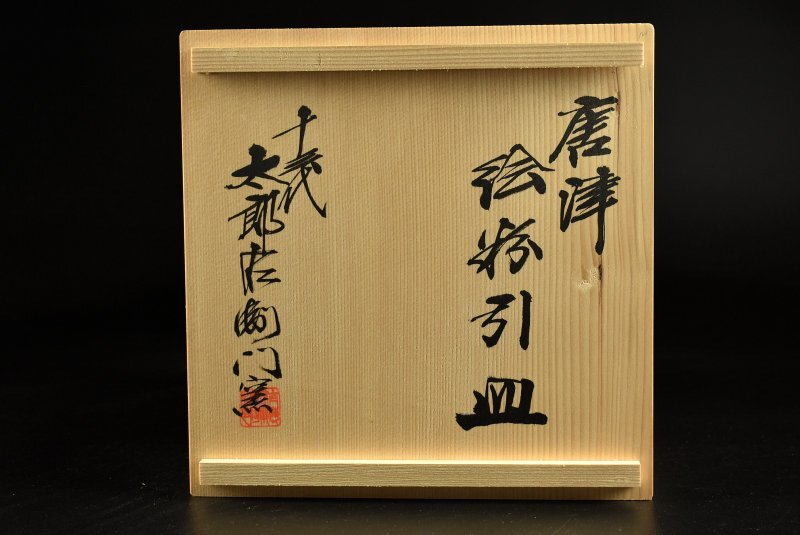 唐津
絵粉引皿
十三代
太郎右衛門窯